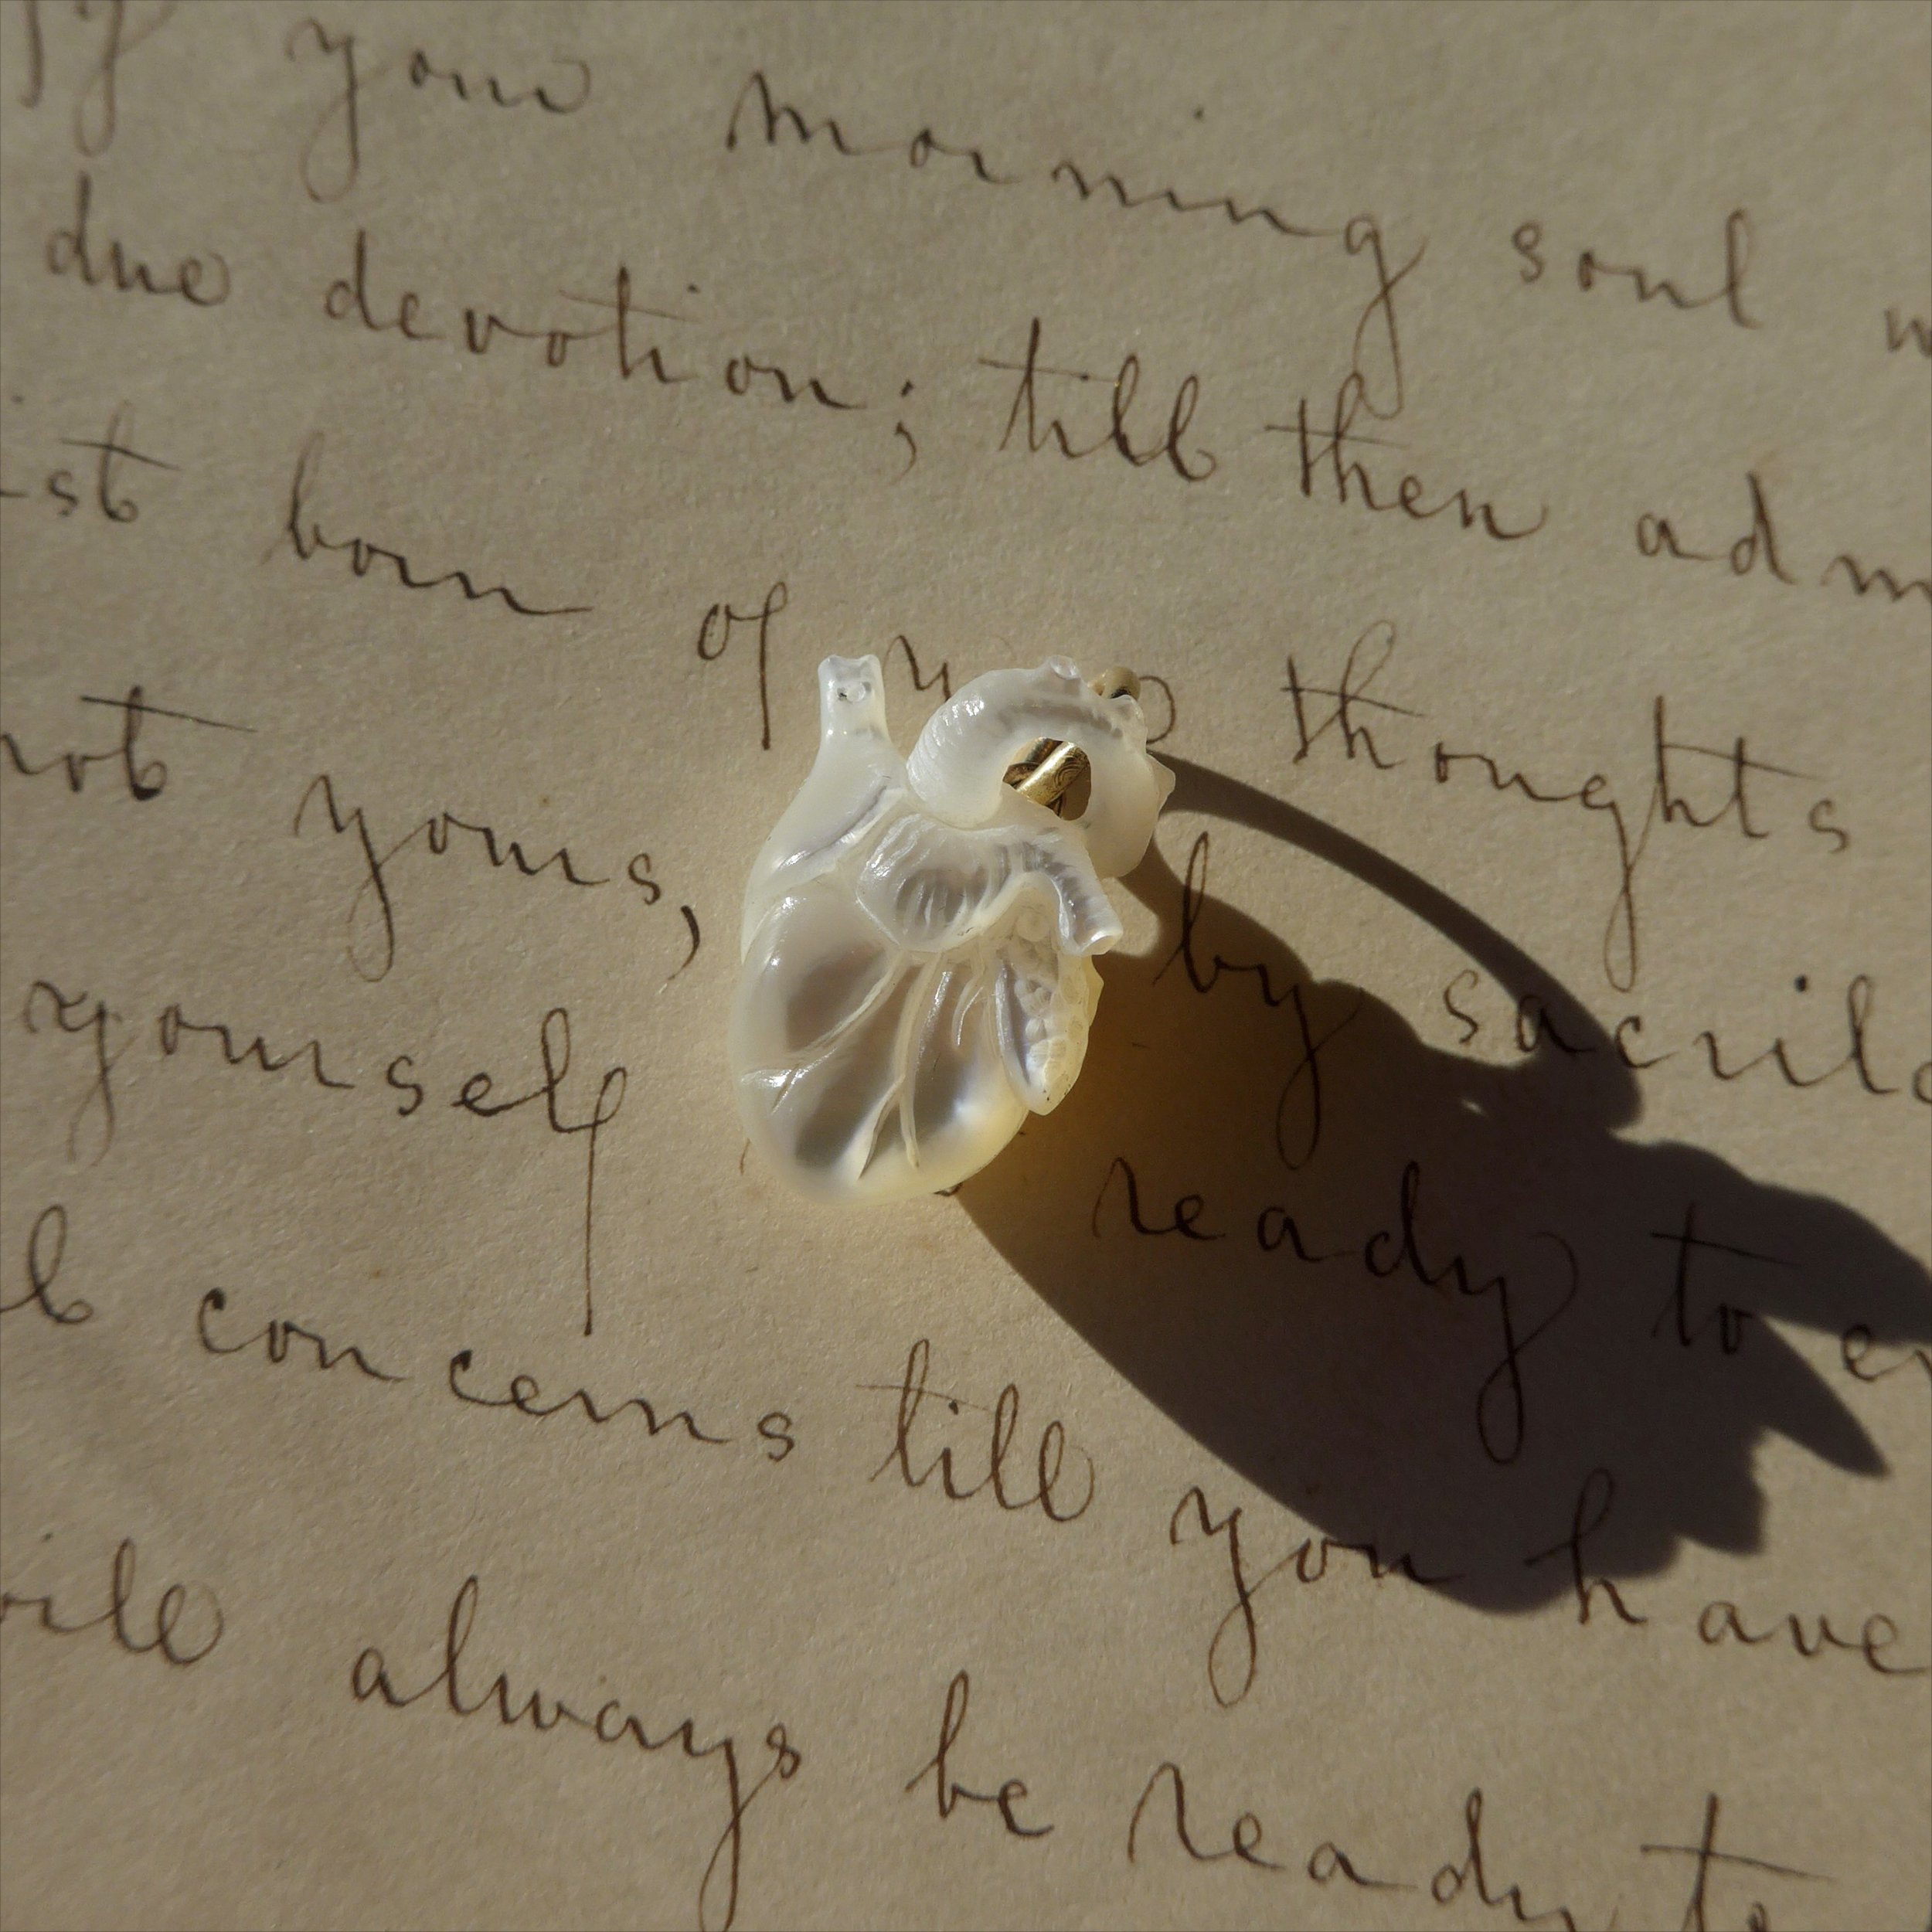 If your morning soul
due devotion; till then adm
st born of thoughts
not yours, by sacril
yourself ready to en
l concerns till you have
will always be ready to